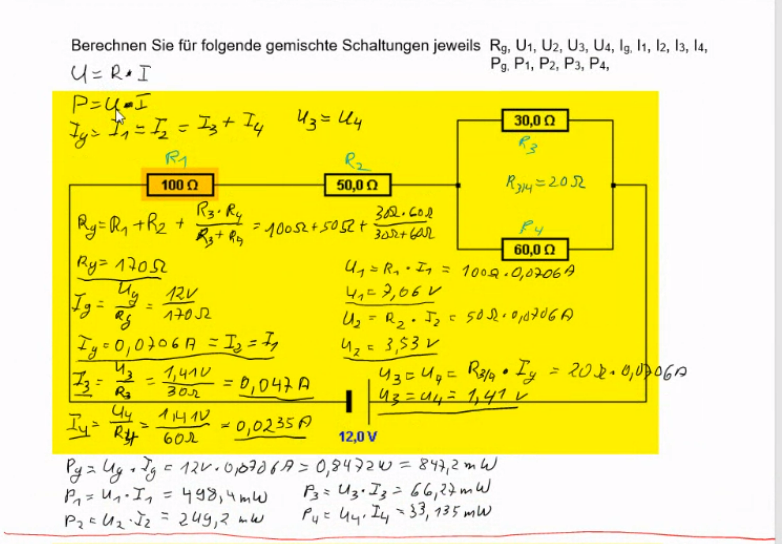 Berechnen Sie für folgende gemischte Schaltungen jeweils Rg, U1, U2, U3, U4, Ig, I1, I2, I3, I4,
Pg, P1, P2, P3, P4,
U = R • I
P = U • I
Ig = I1 = I2 = I3 + I4 U3 = U4
30,0 Ω
R3
R1
R2
100 Ω
50,0 Ω
R3/4 = 20Ω
R4
60,0 Ω
Rg = R1 + R2 + R3 · R4 / R3 + R4 = 100Ω + 50Ω + 30Ω · 60Ω / 30Ω + 60Ω
Rg = 170Ω
Ig = Ug / Rg = 12V / 170Ω
Ig = 0,0706A = I2 = I1
I3 = U3 / R3 = 1,41V / 30Ω = 0,047A
I4 = U4 / R4 = 1,41V / 60Ω = 0,0235A
U1 = R1 · I1 = 100Ω · 0,0706A
U1 = 7,06 V
U2 = R2 · I2 = 50Ω · 0,0706A
U2 = 3,53 V
U3 = U4 = R3/4 • Ig = 20Ω · 0,0706A
U3 = U4 = 1,41 V
12,0 V
Pg = Ug · Ig = 12V · 0,0706A = 0,8472W = 847,2 mW
P1 = U1 · I1 = 498,4 mW P3 = U3 · I3 = 66,27 mW
P2 = U2 · I2 = 249,2 mW P4 = U4 · I4 = 33,135 mW